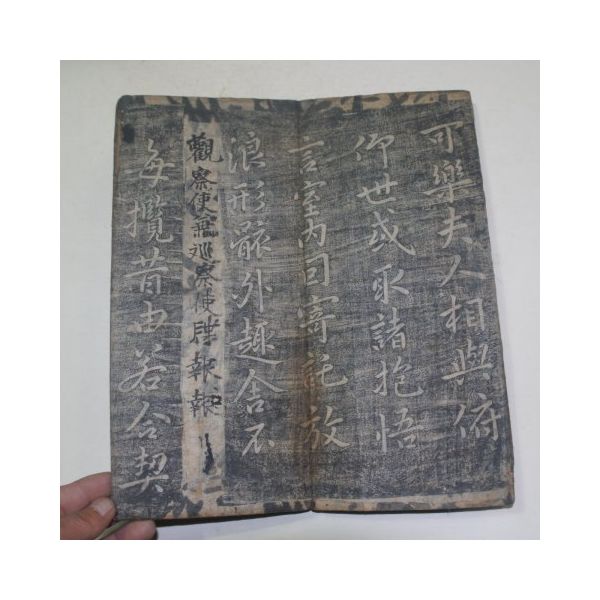 可樂夫人相與俯
仰世或取諸抱悟
言室內因寄託放
浪形骸外趣舍不
觀察使兼巡察使報報
每攬昔由若合契